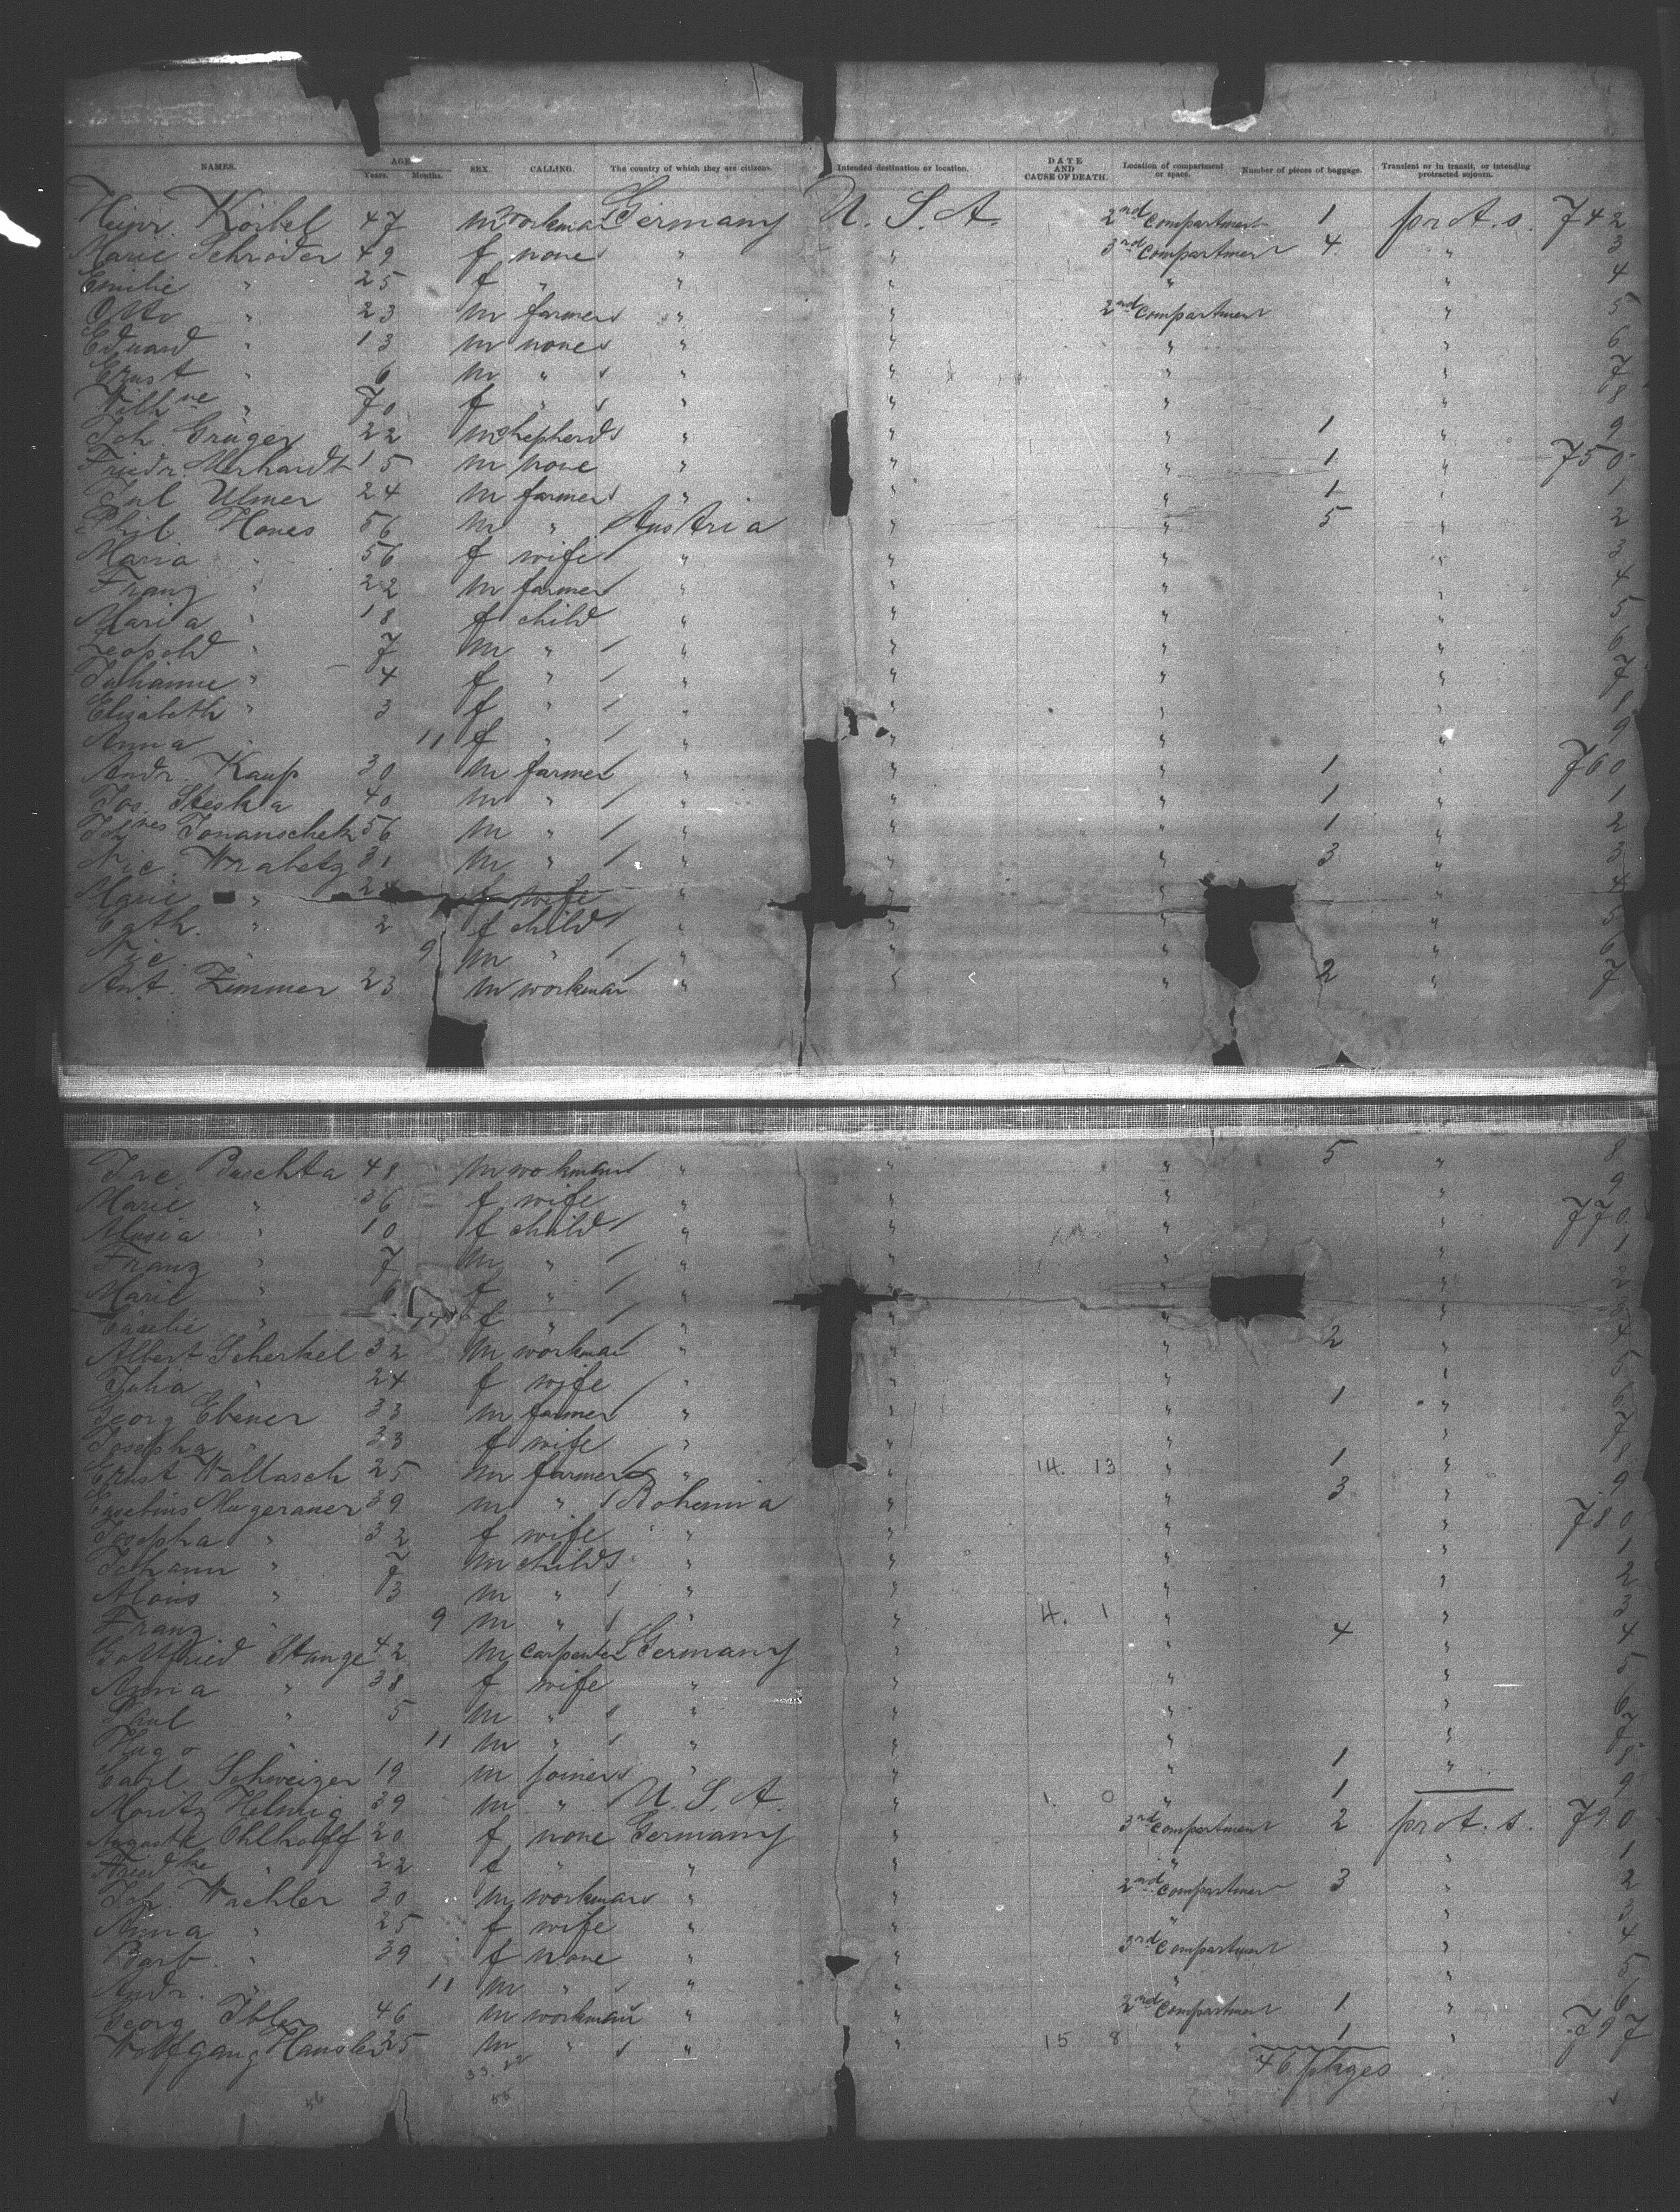 NAMES. AGE. Years. Months. SEX. CALLING. The country of which they are citizens. Intended destination or location. DATE AND CAUSE OF DEATH. Location of compartment or space. Number of pieces of baggage. Transient or in transit, or intending protracted sojourn.
Heinr. Körbel 47 m workman Germany U. S. A. 2nd compartment 1 prot. s. 742
Marie Schröder 49 f none " " 3rd compartment 4 " 3
Emilie " 25 f " " " " " 4
Otto " 23 m farmer " " 2nd compartment " 5
Eduard " 13 m none " " " " 6
Ernst " 6 m " " " " " 7
Wilhne " 70 f " " " " " 8
Joh. Grüger 22 m shepherd " " " 1 " 9
Friedr. 15 m none " " " 1 " 750
Jul Ulmer 24 m farmer " " " 1 " 1
Phil. Hones 56 m " Austria " " 5 " 2
Maria " 56 f wife " " " " 3
Franz " 22 m farmer " " " " 4
Maria " 18 f child " " " " 5
Leopold " 7 m " " " " " 6
Julianne " 4 f " " " " " 7
Elisabeth " 3 f " " " " " 8
Anna " 11 f " " " " " 9
Andr. Kaup 30 m farmer " " " 1 " 760
Jos. Steska 40 m " " " " 1 " 1
Johnes Tomanschek 56 m " " " " 1 " 2
Nic. Wrabetz 31 m " " " " 3 " 3
Marie " f wife " " " " 4
Cath. " 2 f child " " " " 5
Nic. " 9 m " " " " " 6
Ant. Zimmer 23 m workman " " " 2 " 7
Jac. Puschta 48 m workman " " " 5 " 8
Marie " 36 f wife " " " " 9
Alusia " 10 f child " " " " 770
Franz " 7 m " " " " " 1
Marie " 6 f " " " " " 2
Cäcelie " f " " " " " 3
Albert Scherkel 32 m workman " " " 2 " 4
Julia " 24 f wife " " " " 5
Georg Ebener 33 m farmer " " " 1 " 6
Josepha " 33 f wife " " " " 7
Ernst Wallasch 25 m farmer " " 14. 13 " 1 " 8
Eusebius Mugerauer 39 m " Bohemia " " 3 " 9
Josepha " 32 f wife " " " " 780
Johann " 7 m child " " " " 1
Alois " 3 m " " " " " 2
Franz " 9 m " " " 4. 1 " " 3
Gottfried Stange 42 m carpenter Germany " " 4 " 4
Anna " 38 f wife " " " " 5
Paul " 5 m " " " " " 6
Hugo " 11 m " " " " " 7
Carl Schweizer 19 m joiner " " " 1 " 8
Moritz Helmig 39 m " U. S. A. " 1. 0 " 1 9
Auguste Ohlhoff 20 f none Germany " 3rd compartment 2 prot. s. 790
Friedke " 22 f " " " " " 1
Joh. Wachler 30 m workman " " 2nd compartment 3 " 2
Anna " 25 f wife " " " " 3
Barb. " 39 f none " " 3rd compartment " 4
Andr. " 11 m " " " " " 5
Georg Ibler 46 m workman " " 2nd compartment 1 " 6
Wolfgang Hansler 25 m " " " 15 8 " 1 " 797
33. 22 46 pkges
56 55